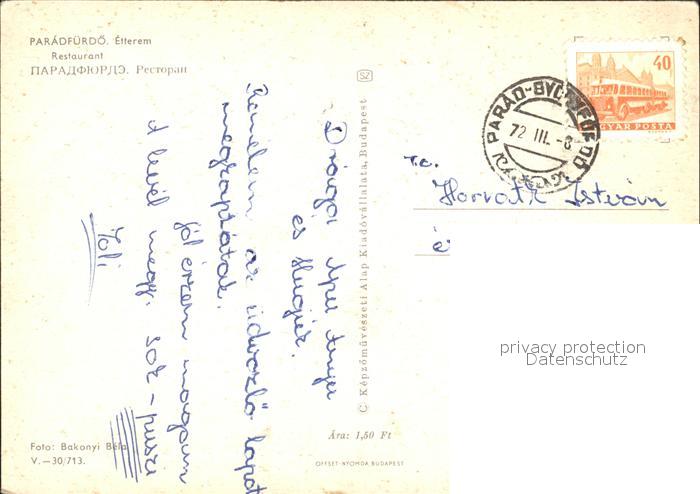 PARÁDFÜRDŐ. Étterem
Restaurant
ПАРАДФЮРДЭ. Ресторан
Drága Apu Anyu
és Hugi.
Remélem az üdvözlő lapot
megkaptátok.
Jól érzem magam
A levél megy. sok-puszi
Joli
Foto: Bakonyi Béla
V.—30/713.
SZ
© Képzőművészeti Alap Kiadóvállalata, Budapest
Ára: 1,50 Ft
OFFSET-NYOMDA BUDAPEST
40
MAGYAR POSTA
72 III. -8
Horváth István
é
privacy protection
Datenschutz